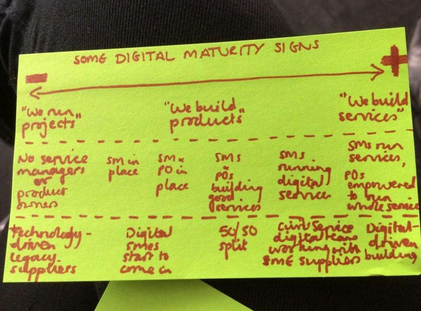 SOME DIGITAL MATURITY SIGNS
- +
"We run
projects"
"We build
products"
"We build
services"
No service
managers
or
product
owners
SM in
place
SM +
PO in
place
SMs
+
POs
building
good
services
SMs
running
digital
services
SMs run
services,
POs
empowered
to run
whole service
Technology-
driven
legacy
suppliers
Digital
SMEs
start to
come in
50/50
split
Civil Service
digital teams
working with
SME suppliers
Digital-
driven
building